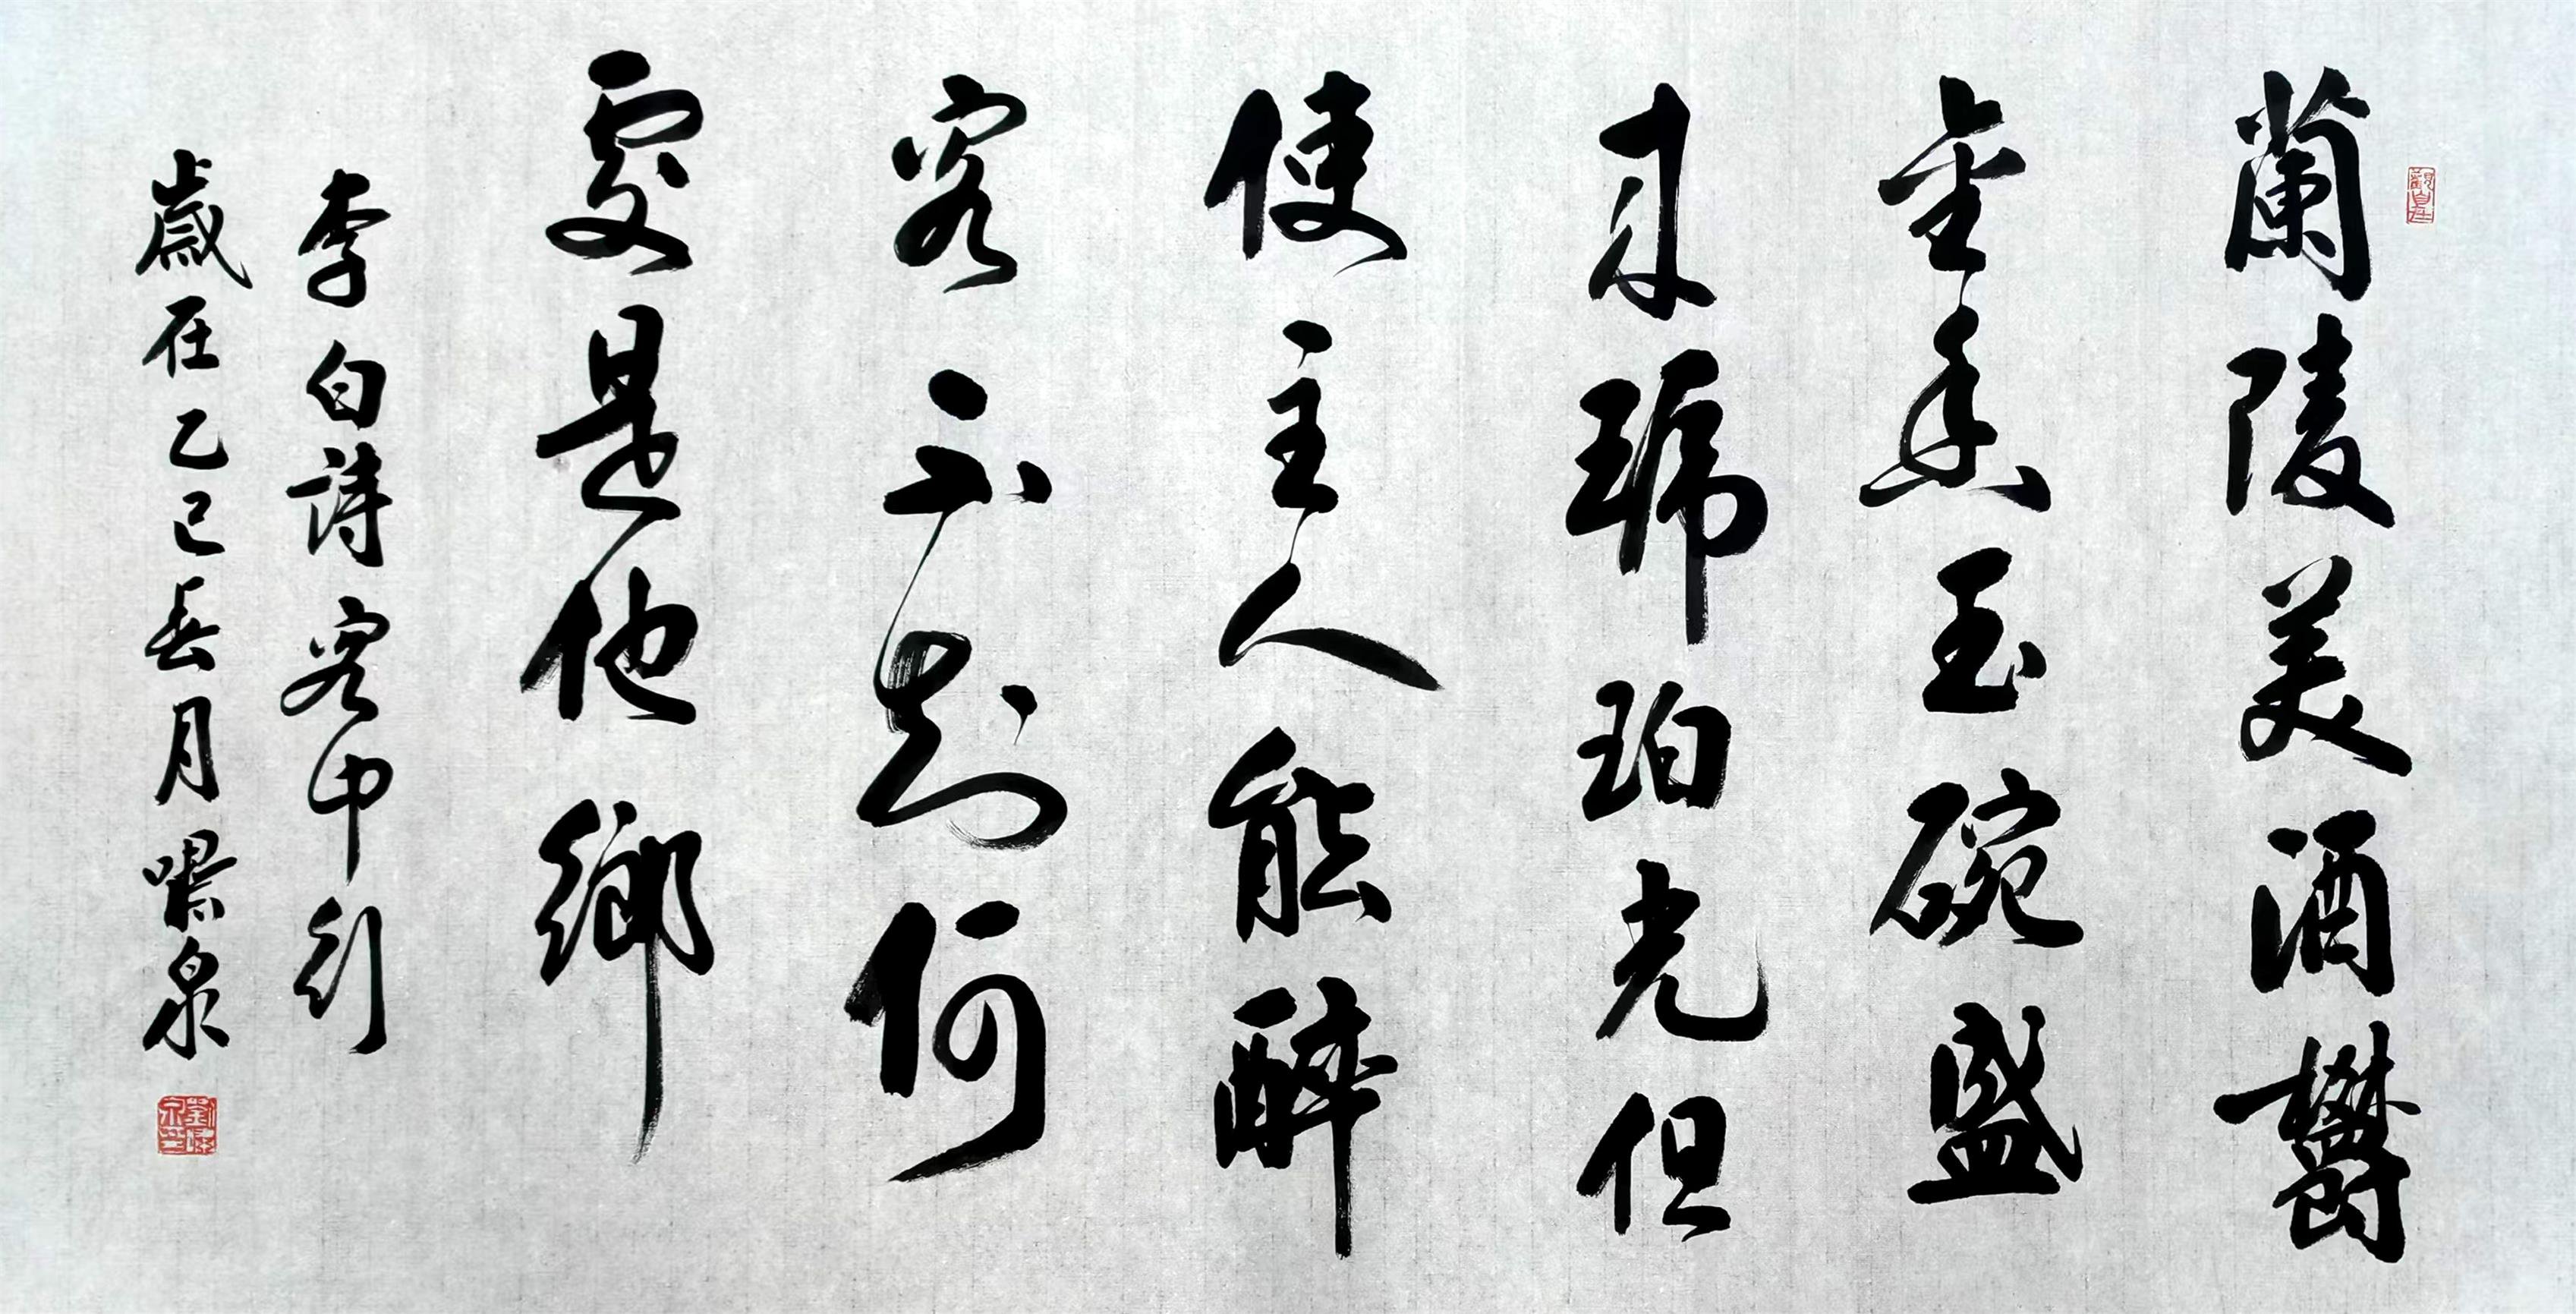 觀自在
蘭陵美酒欝
金香玉碗盛
來琥珀光但
使主人能醉
客不知何
處是他鄉
李白詩客中行
歲在乙巳春月泉